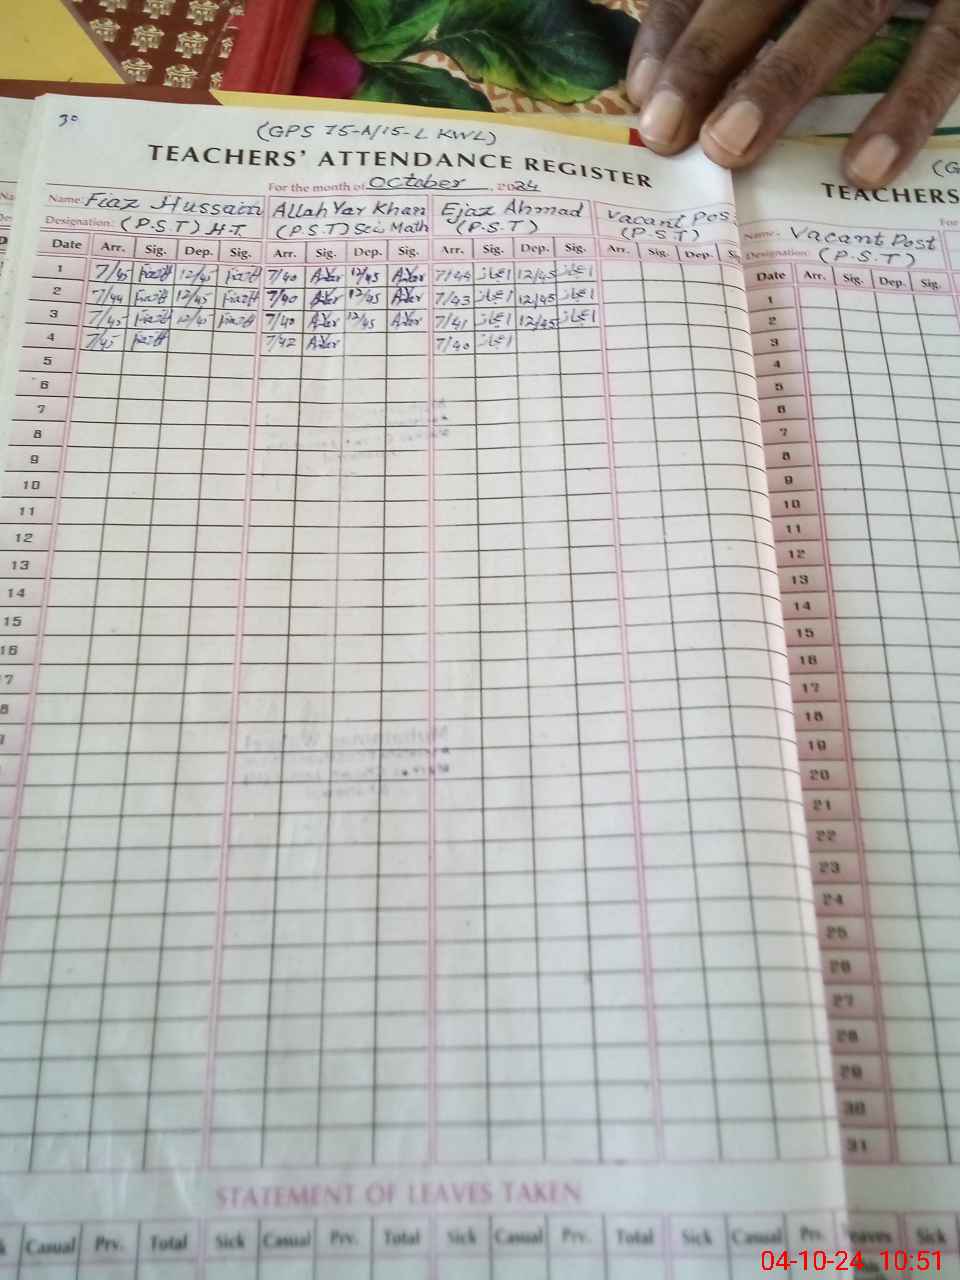 30
(GPS 75-A/15-L KWL)
TEACHERS' ATTENDANCE REGISTER
For the month of October, 2024
Name: Fiaz Hussain Allah Yar Khan Ejaz Ahmad Vacant Pos
Designation: (P.S.T) H.T (P.S.T) Sci Math (P.S.T) (P.S.T)
Date Arr. Sig. Dep. Sig. Arr. Sig. Dep. Sig. Arr. Sig. Dep. Sig. Arr. Sig. Dep.
1 7/45 12/45 7/40 12/45 7/44 اعجاز 12/45 اعجاز
2 7/44 12/45 7/40 12/45 7/43 اعجاز 12/45 اعجاز
3 7/45 12/45 7/40 12/45 7/41 اعجاز 12/45 اعجاز
4 7/45 7/42 7/40 اعجاز
5
6
7
8
9
10
11
12
13
14
15
16
7
8
STATEMENT OF LEAVES TAKEN
Casual Prv. Total Sick Casual Prv. Total Sick Casual Prv. Total Sick Casual Prv.
TEACHERS
Name: Vacant Post
Designation: (P.S.T)
Date Arr. Sig. Dep. Sig.
1
2
3
4
5
6
7
8
9
10
11
12
13
14
15
16
17
18
19
20
21
22
23
24
25
26
27
28
29
30
31
eaves Sick
04-10-24 10:51